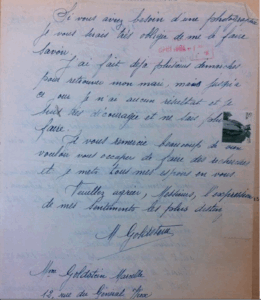 Si vous avez besoin d'une photographie
je vous serais très obligée de me le faire
savoir.
J'ai fait déjà plusieurs démarches
pour retrouver mon mari, mais jusqu'à
ce jour je n'ai aucun résultat et je
suis découragée et ne sais plus
faire.
Je vous remercie beaucoup de
vouloir vous occuper de faire des recherches
et je mets tous mes espoirs en vous
Veuillez agréer, Messieurs, l'expression
de mes sentiments les plus
M. Goldstein
Mme Goldstein
12, rue du General